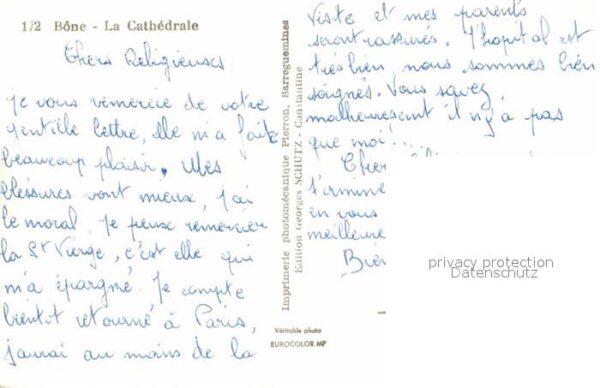 1/2 Bône - La Cathédrale
Chers Religieuses
Je vous remercie de votre
gentille lettre, elle m'a faite
beaucoup plaisir. Mes
blessures vont mieux, j'ai
le moral. Je peux remercier
la St Vierge, c'est elle qui
m'a épargné. Je compte
bientôt retourné à Paris,
j'aurai au moins de la
Imprimerie photomécanique Pierron, Sarreguemines
Edition Georges SCHUTZ - Constantine
Véritable photo
EUROCOLOR MP
Viste et mes parents
seront rassurés. L'hopital est
tres bien nous sommes bien
soignés. Vous savez,
malheuresent il n'y a pas
que moi....
Cher
termine
en vous
meilleure
privacy protection
Datenschutz